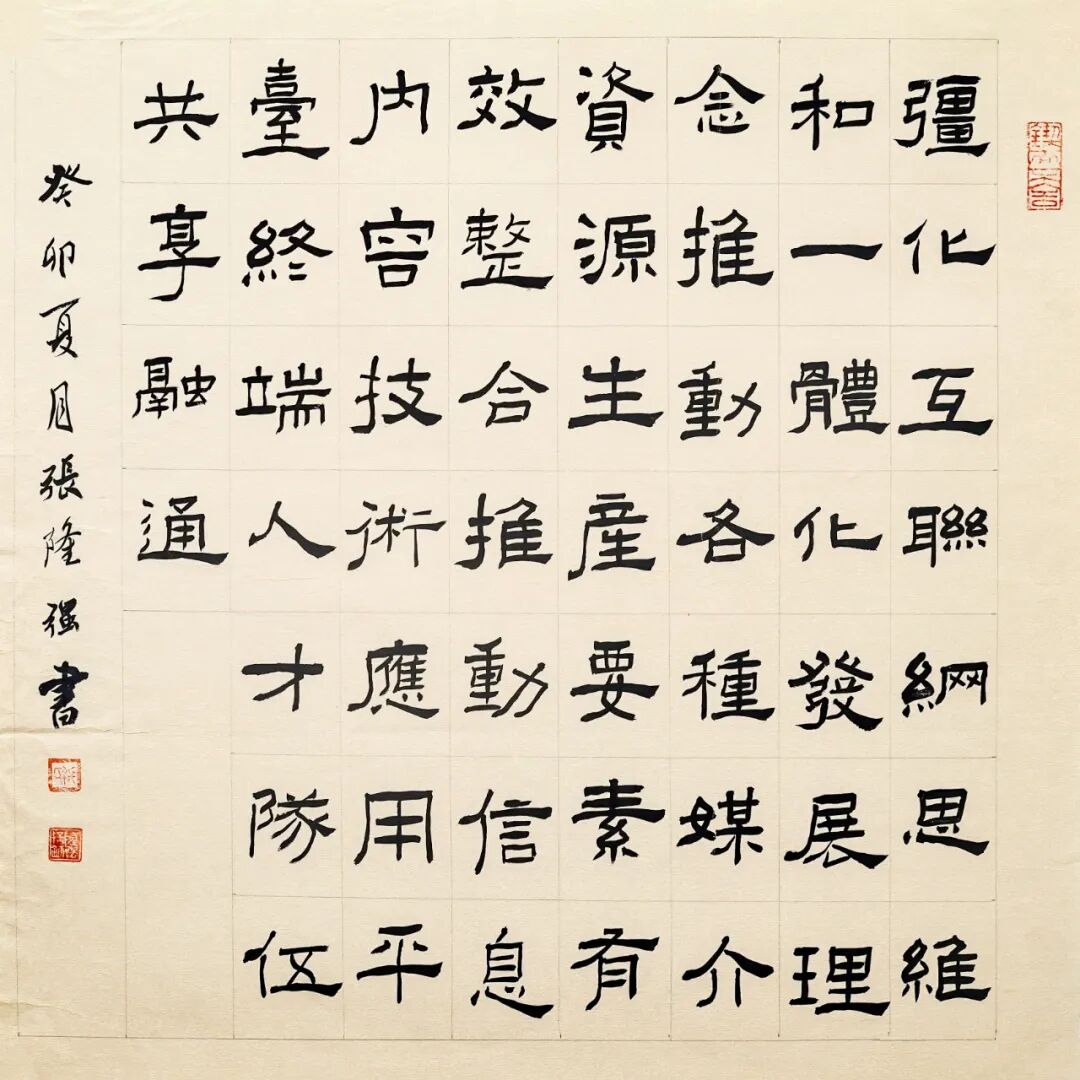 彊化互聯網思維
和一體化發展理
念推動各種媒介
資源生產要素有
效整合推動信息
內容技術應用平
臺終端人才隊伍
共享融通
癸卯夏月張隆强書